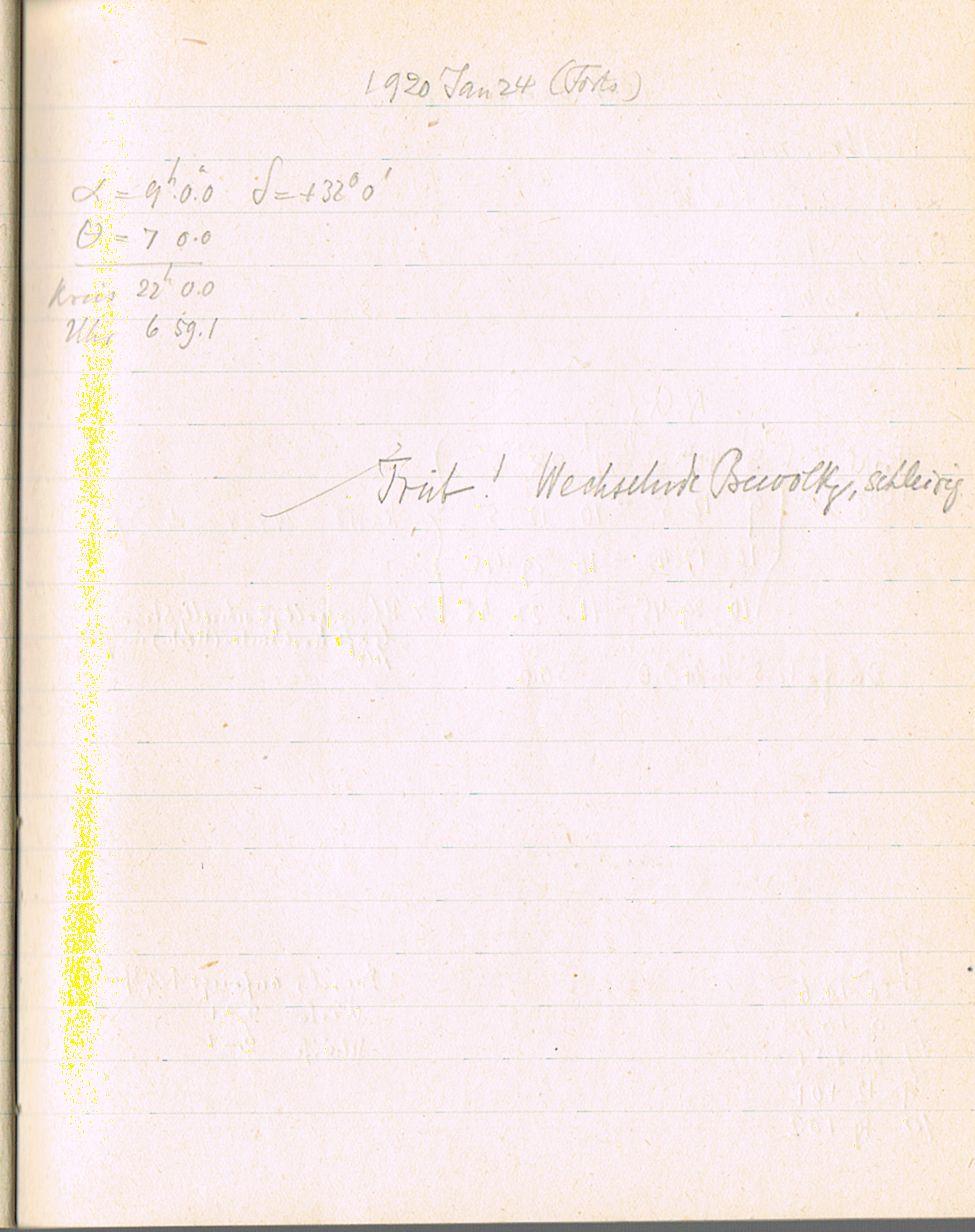 1920 Jan 24 (Forts)
α = 9ʰ 0.ᵐ0 δ = +32° 0'
Θ = 7 0.0
Kreis 22ʰ 0.0
Uhr 6 59.1
Trüb! Wechselnde Bewölkg, schleirig.